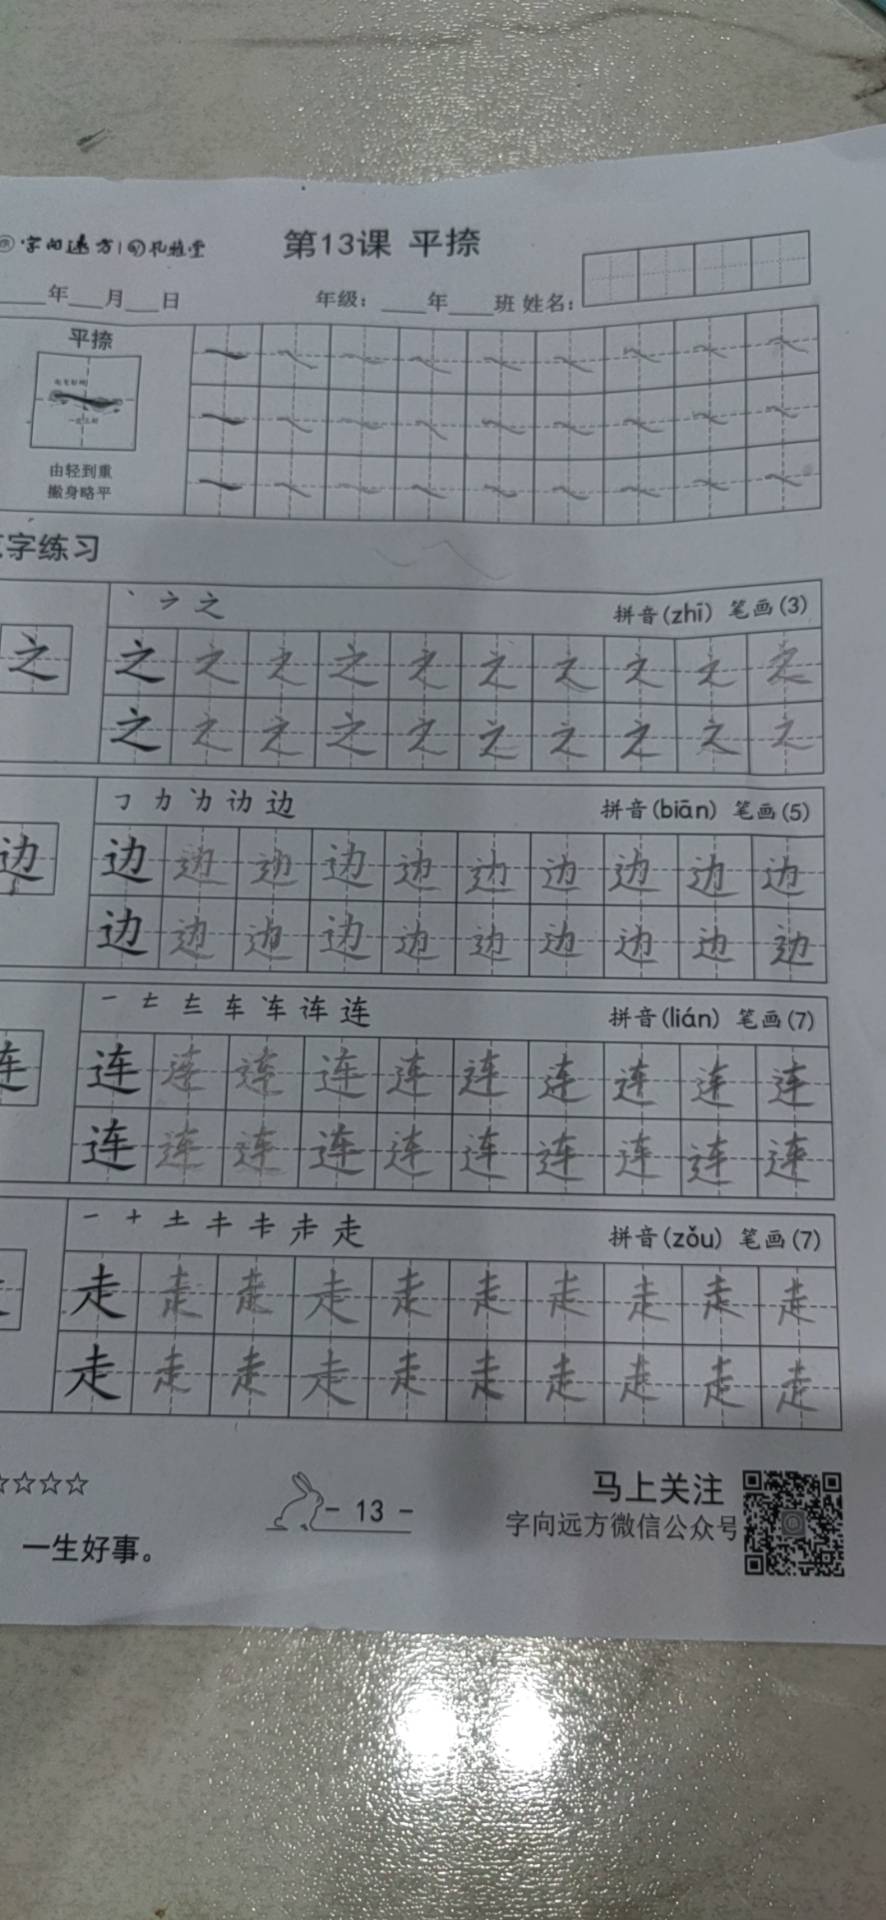 字向远方
第13课 平捺
年 月 日 年级: 年 班 姓名:
平捺
由轻到重
搬身略平
字练习
丶 之 拼音(zhī) 笔画(3)
之 之 之 之 之 之 之 之 之 之 之
之 之 之 之 之 之 之 之 之 之
㇆ 力 边 拼音(biān) 笔画(5)
边 边 边 边 边 边 边 边 边 边 边
边 边 边 边 边 边 边 边 边 边
一 车 连 拼音(lián) 笔画(7)
连 连 连 连 连 连 连 连 连 连 连
连 连 连 连 连 连 连 连 连 连
一 十 土 走 拼音(zǒu) 笔画(7)
走 走 走 走 走 走 走 走 走 走
走 走 走 走 走 走 走 走 走 走
☆☆☆☆
- 13 -
马上关注
字向远方微信公众号
一生好事。